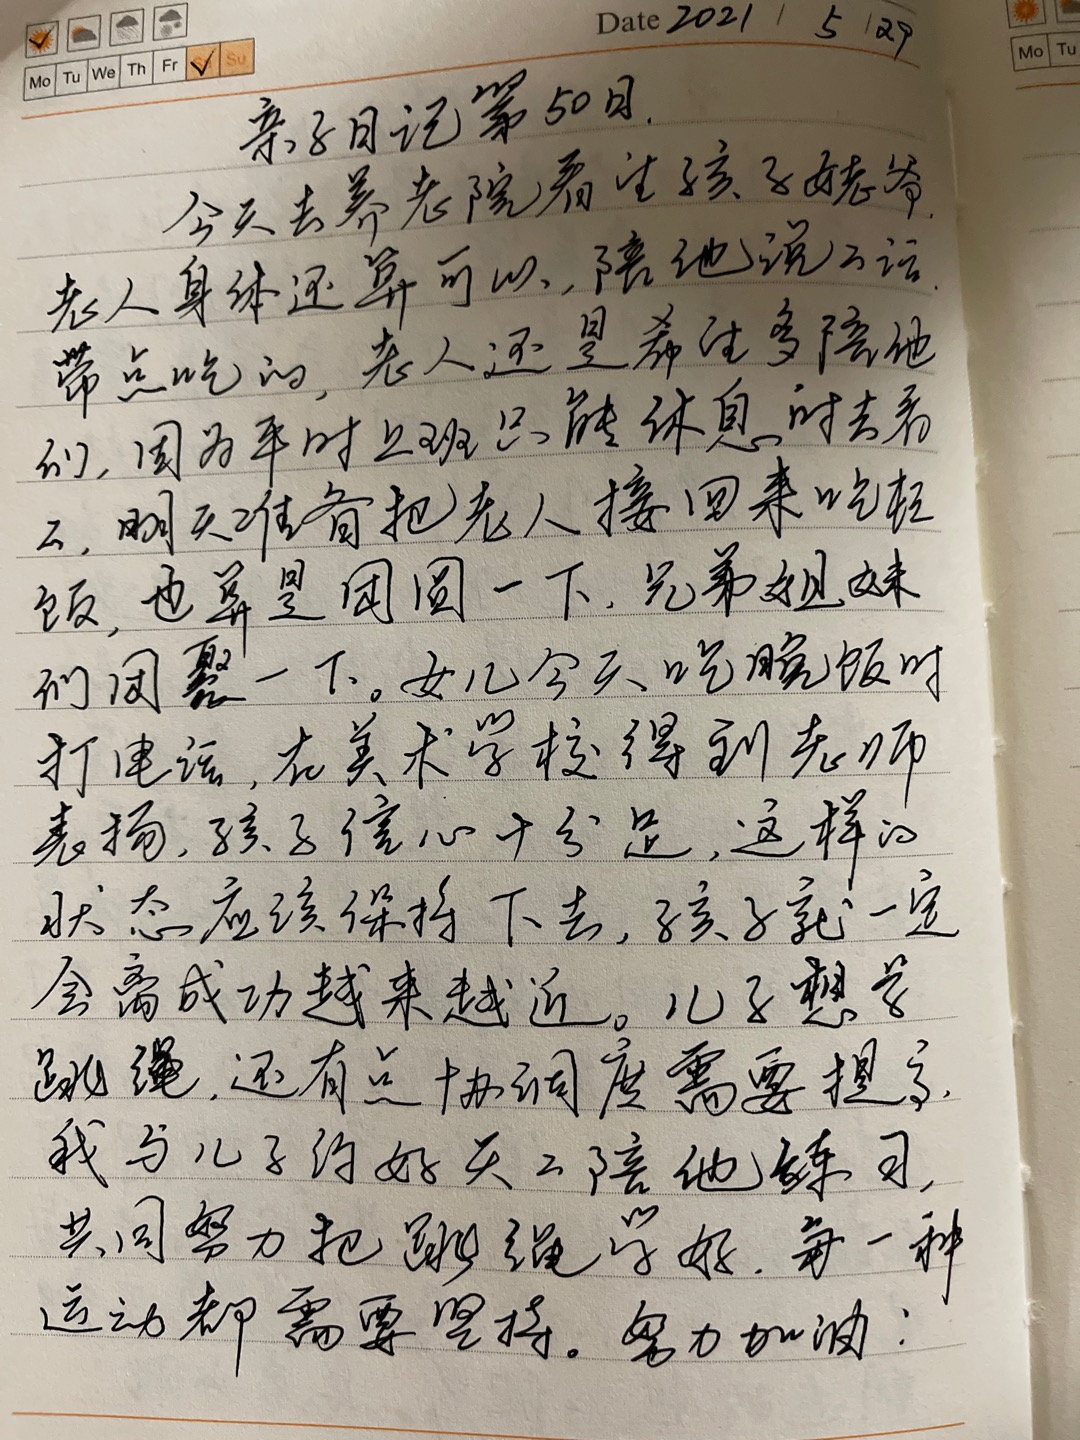 Date 2021 / 5 / 29
Mo Tu We Th Fr Sa Su
Mo Tu
亲子日记第50日.
今天去养老院看望孩子姥爷.
老人身体还算可以,陪他说々话.
带点吃的,老人还是希望多陪他
们,因为平时上班只能休息时去看
々,明天准备把老人接回来吃顿
饭,也算是团圆一下,兄弟姐妹
们团聚一下。女儿今天吃晚饭时
打电话,在美术学校得到老师
表扬,孩子信心十分足,这样的
状态应该保持下去,孩子就一定
会离成功越来越近。儿子想学
跳绳,还有点协调度需要提高.
我与儿子约好天々陪他练习,
共同努力把跳绳学好.每一种
运动都需要坚持。努力加油: